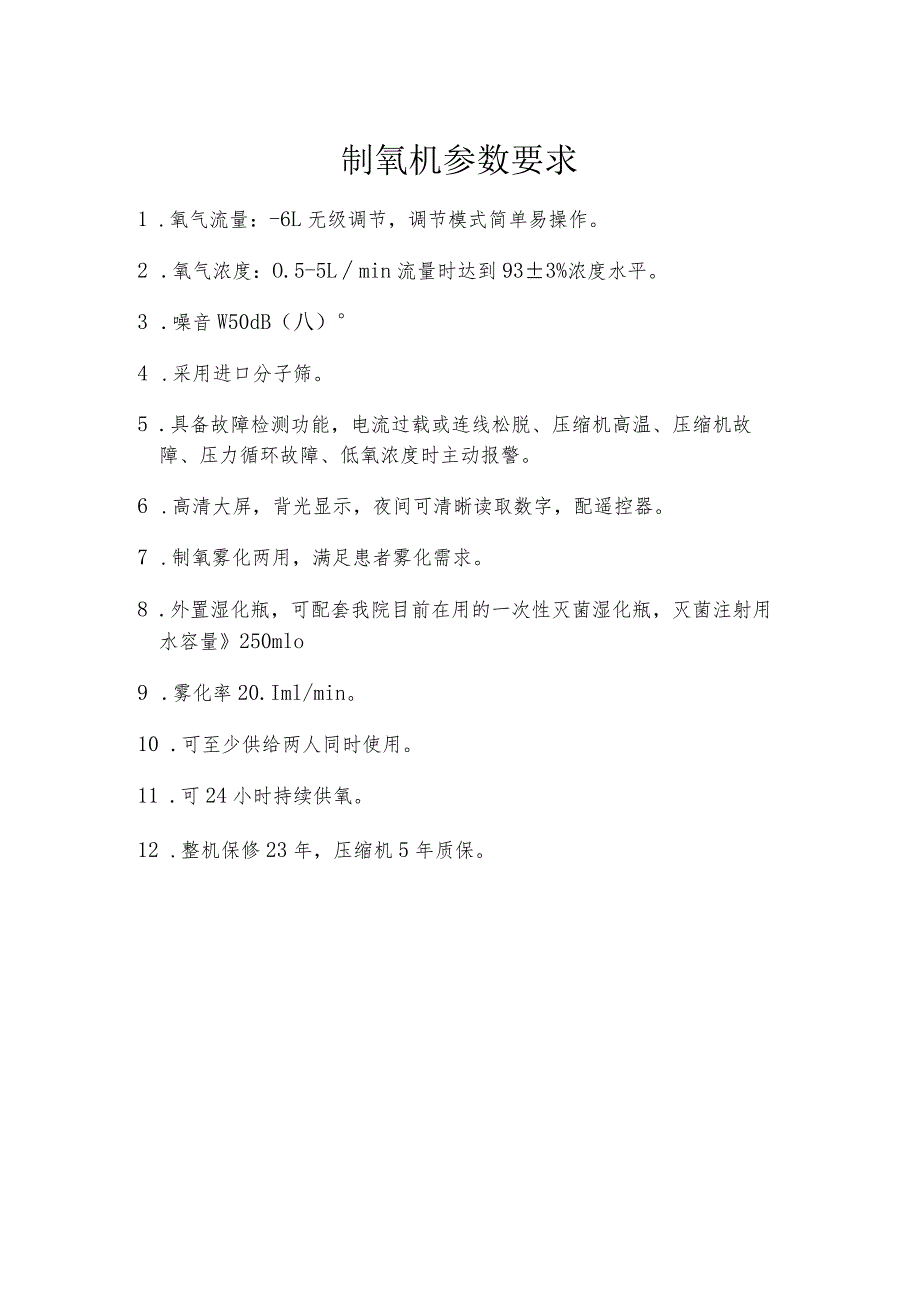 制氧机参数要求
1 .氧气流量：-6L无级调节，调节模式简单易操作。
2 .氧气浓度：0.5-5L／min流量时达到93±3%浓度水平。
3 .噪音W50dB（八）°
4 .采用进口分子筛。
5 .具备故障检测功能，电流过载或连线松脱、压缩机高温、压缩机故
障、压力循环故障、低氧浓度时主动报警。
6 .高清大屏，背光显示，夜间可清晰读取数字，配遥控器。
7 .制氧雾化两用，满足患者雾化需求。
8 .外置湿化瓶，可配套我院目前在用的一次性灭菌湿化瓶，灭菌注射用
水容量》250mlo
9 .雾化率20.Iml/min。
10 .可至少供给两人同时使用。
11 .可24小时持续供氧。
12 .整机保修23年，压缩机5年质保。